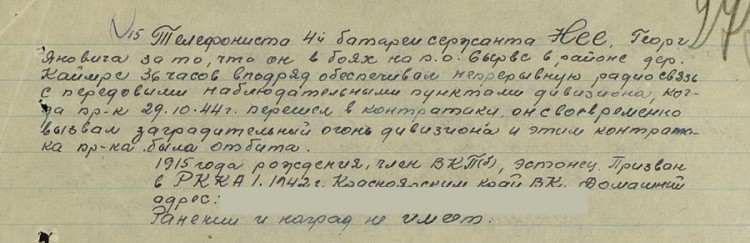 15 Телефониста 4й батареи сержанта Нее, Георг
Яновича за то, что он в боях на п-о. Сырве в районе дер.
Каймре 36 часов подряд обеспечивал непрерывную радиосвязь
с передовыми наблюдательными пунктами дивизиона, ког-
да пр-к 29.10.44г. перешел в контратаки, он своевременно
вызвал заградительный огонь дивизиона и этим контрата-
ка пр-ка была отбита.
1915 года рождения, член ВКП(б), эстонец. Призван
в РККА 1.1942г. Красноярским край ВК. Домашний
адрес:
Ранений и наград не имеет.